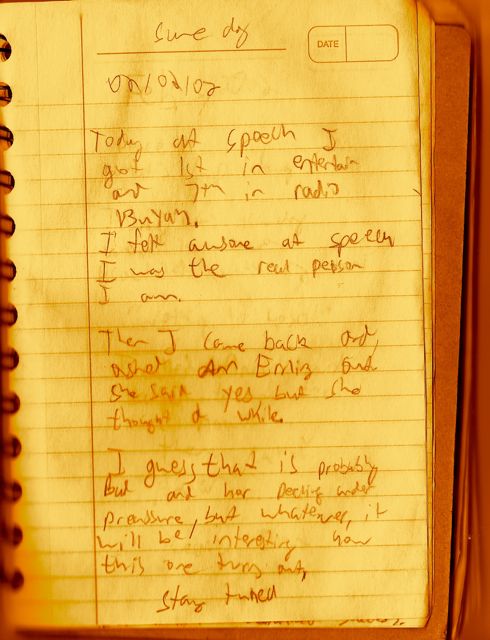 Same day
DATE
02/02/02
Today at speech I
got 1st in entertain
and 7th in radio
Buyah.
I felt awsome at speech
I was the real person
I am.
Then I came back and
asked Ann Emliz and
she said yes, but she
thought a while.
I guess that is probably
bad and her under
preassure, but whatever, it
will be interesting how
this one turns out,
stay tuned